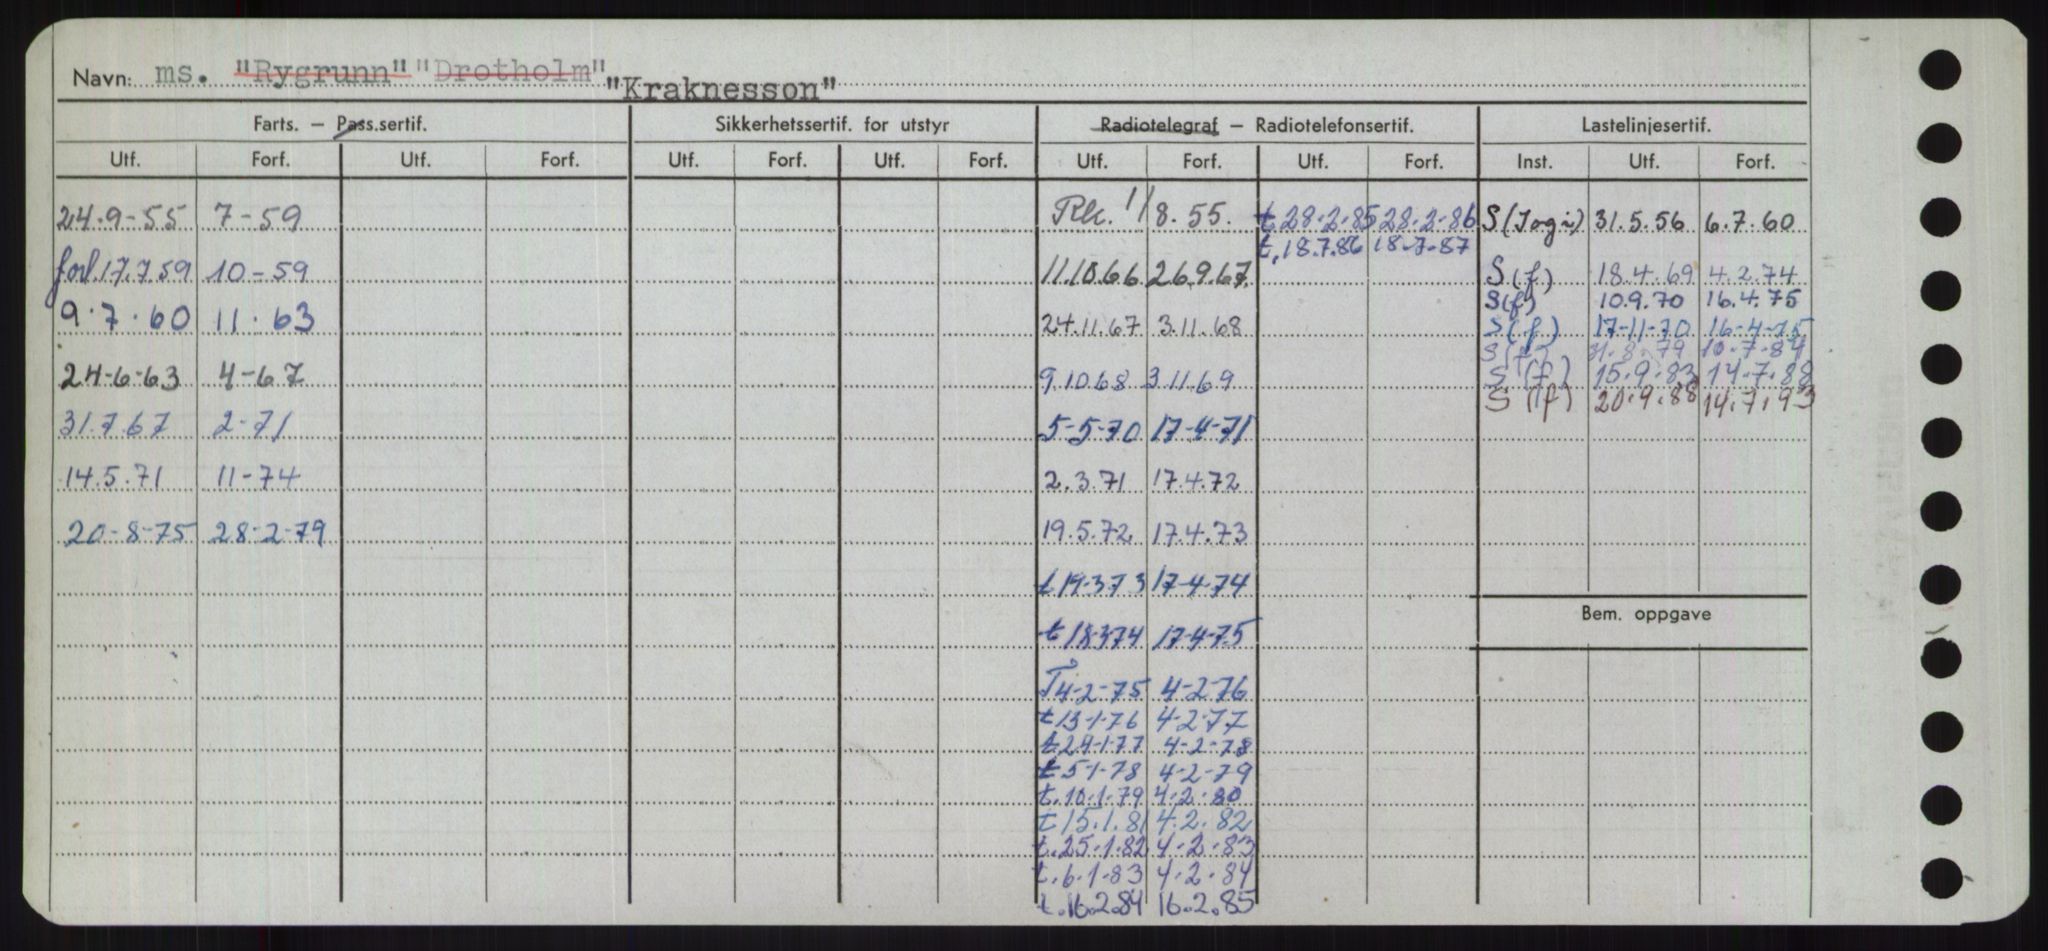 Navn: ms. "Rygrunn" "Drotholm"
"Kraknesson"
Farts. – Pass.sertif. Sikkerhetssertif. for utstyr Radiotelegraf – Radiotelefonsertif. Lastelinjesertif.
Utf. Forf. Utf. Forf. Utf. Forf. Utf. Forf. Utf. Forf. Utf. Forf. Inst. Utf. Forf.
24.9-55 7-59 Rk. 1/8.55. t 28.2.85 28.2.86 S 31.5.56 6.7.60
t. 18.7.86 18.7.87
forl. 17.7.59 10-59 11.10.66 26.9.67. S(f) 18.4.69 4.2.74
S(f) 10.9.70 16.4.75
9.7.60 11.63 24.11.67 3.11.68 S(f) 17-11-70 16-4-75
S(f) 31.8.79 10.7.84
24-6-63 4-67 9.10.68 3.11.69 S(f) 15.9.83 14.7.88
S(f) 20.9.88 14.7.93
31.7.67 2-71 5-5-70 17-4-71
14.5.71 11-74 2.3.71 17.4.72
20-8-75 28-2-79 19.5.72 17.4.73
t 19-3.73 17-4-74
Bem. oppgave
t 18-3.74 17-4-75
T 4-2-75 4-2-76
t 13-1-76 4-2-77
t 24.1.77 4-2-78
t 5-1-78 4-2-79
t. 10.1.79 4.2.80
t 15.1.81 4.2.82
t. 25.1.82 4.2.83
t. 6.1.83 4.2.84
t. 16.2.84 16.2.85